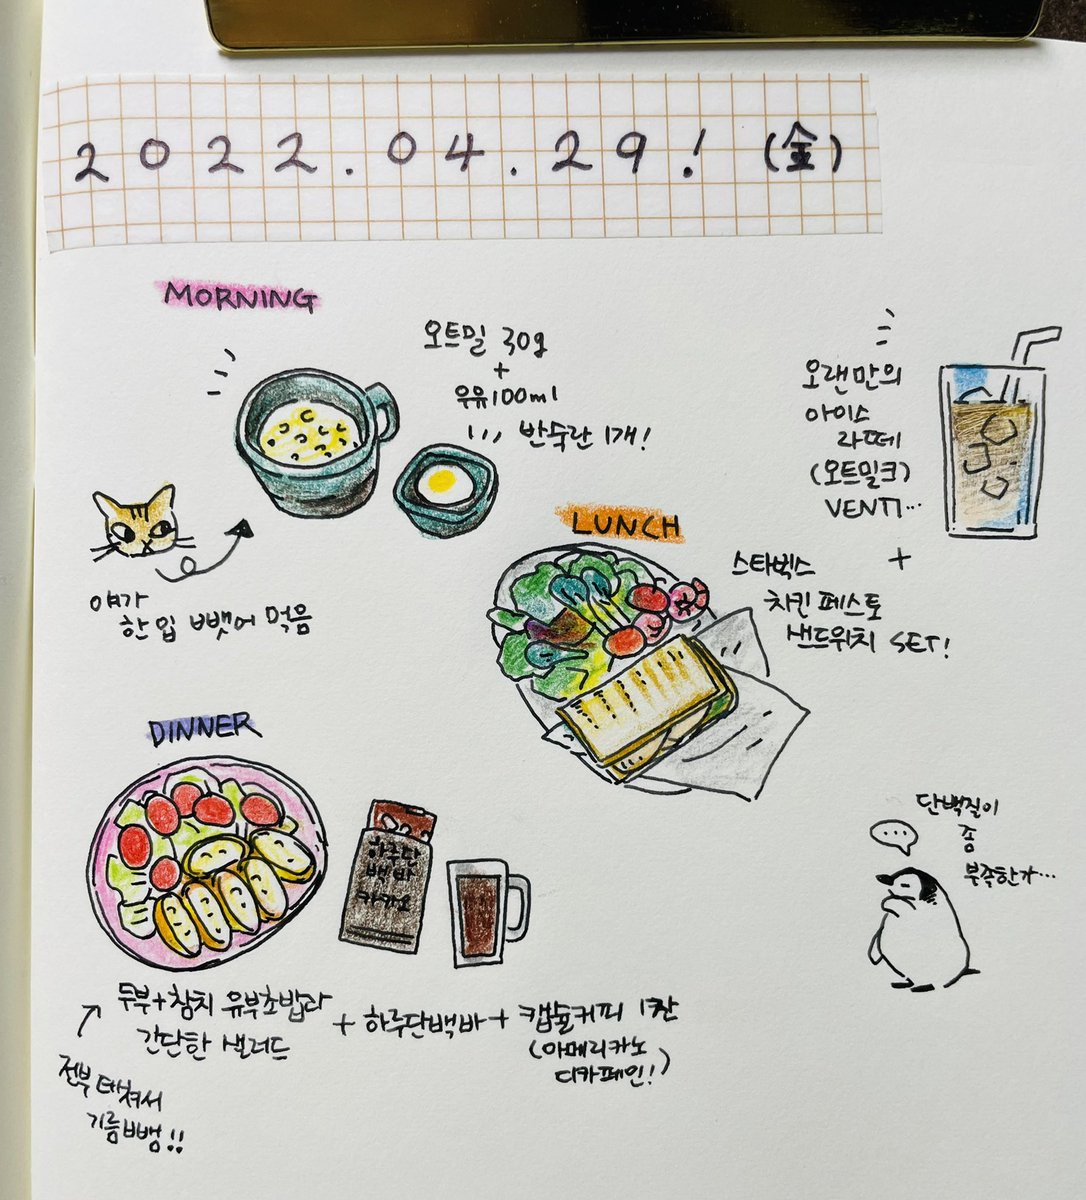 2022.04.29! (金)
MORNING
오트밀 30g
+
우유100ml
반숙란 1개!
얘가
한 입 뺏어 먹음
오랜만의
아이스
라떼
(오트밀크)
VENTI...
+
LUNCH
스타벅스
치킨 페스토
샌드위치 SET!
DINNER
하루단
백바
카카오
단백질이
좀
부족한가...
두부+참치 유부초밥과
간단한 샐러드
+ 하루단백바 + 캡슐커피 1잔
(아메리카노
디카페인!)
전부 데쳐서
기름뺌!!